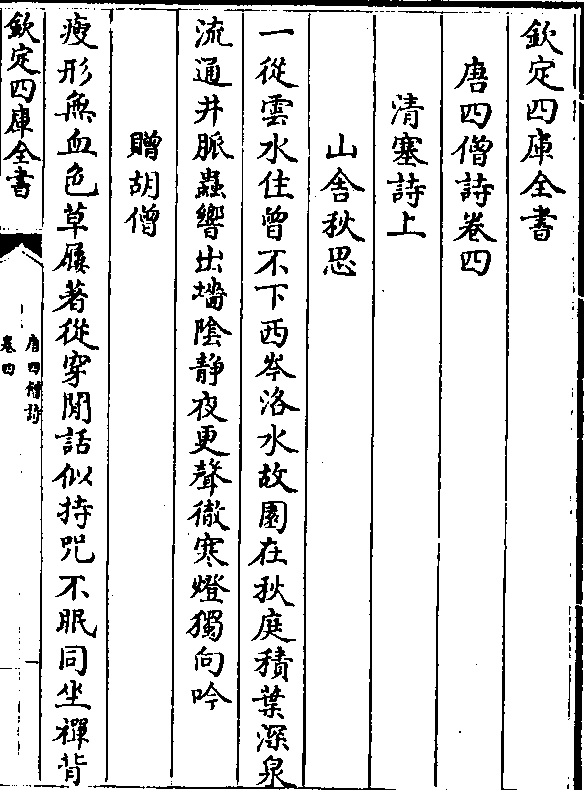 欽定四庫全書
唐四僧詩卷四
清塞詩上
山舍秋思
一從雲水住曾不下西岑洛水故園在秋庭積葉深泉
流通井脈蟲響出墻陰靜夜更聲徹寒燈獨向吟
贈胡僧
瘦形無血色草屨著從穿閒話似持咒不眠同坐禪背
欽定四庫全書
唐四僧詩
卷四
一